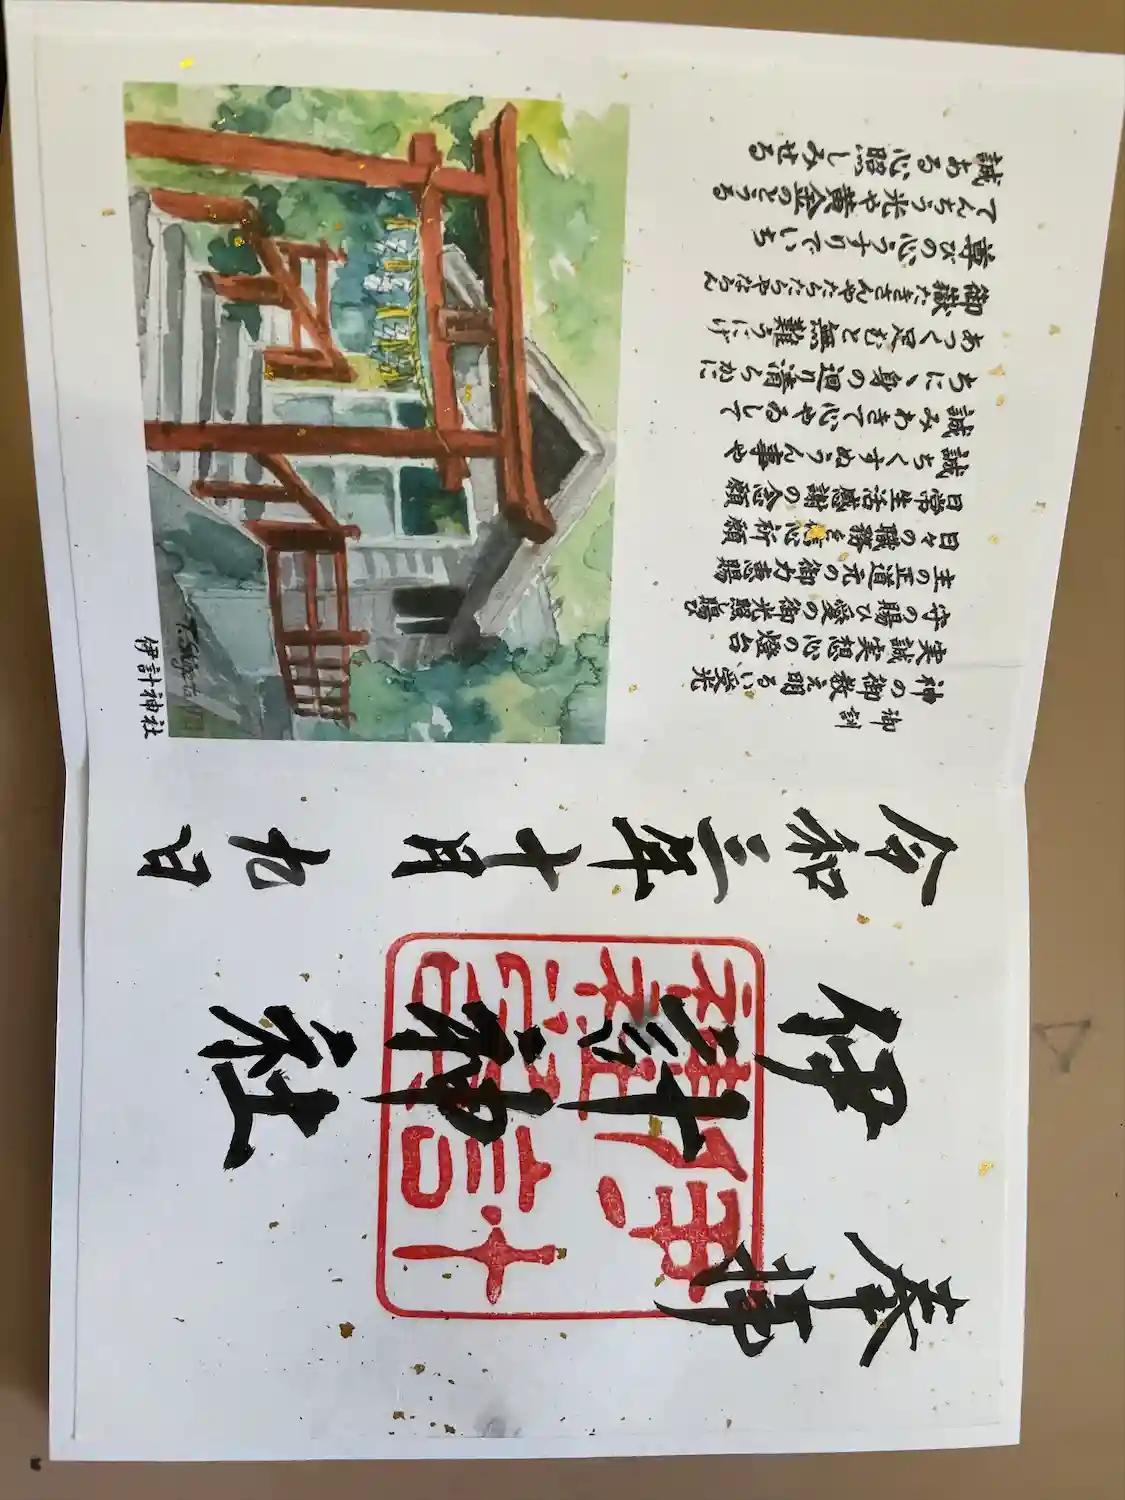 奉拝
伊計神社
令和三年十月九日
御訓
神の御教え明るい受光
実誠実想心の燈台
守の賜ひ愛の御光照し賜ひ
主の正道元の御力恵賜
日々の職務を心祈願
日常生活感謝の念願
誠ちくすぬうん事や
誠みわきて心やゐして
ちに、身の廻り清らかに
あつく足むと無難うにげ
御嶽たきさんやたらたらやならん
尊びの心うすりていち
てんちう光や黄金のどうる
誠ある心照しみせる
伊計神社